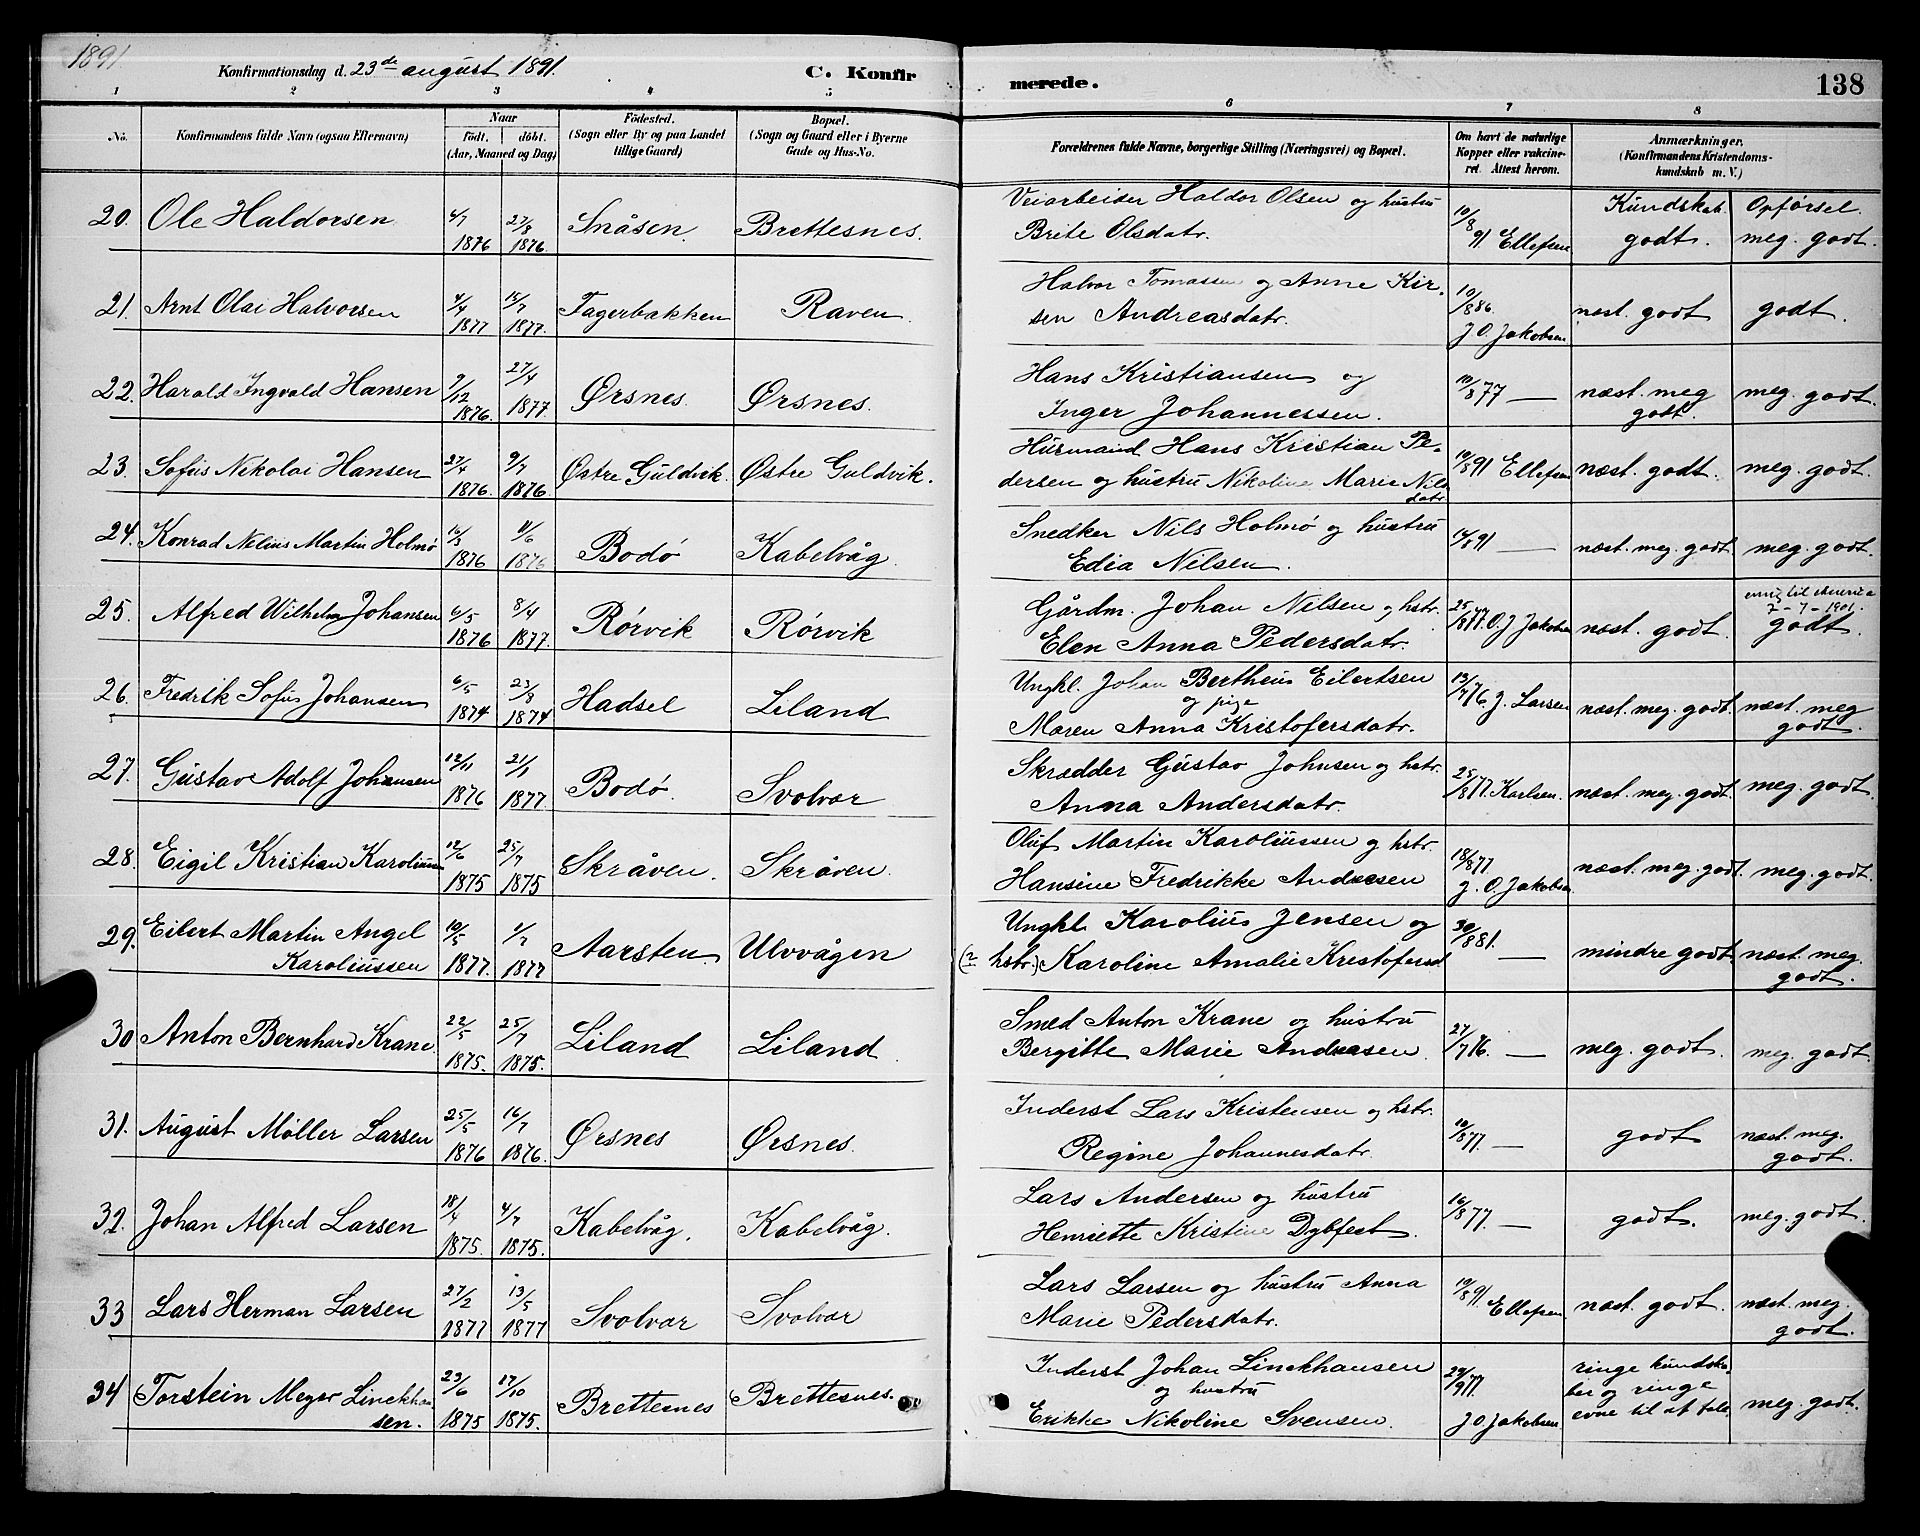 1891.
Konfirmationsdag d. 23de august 1891. C. Konfir
merede. 138
1 2 3 4 5 6 7 8
No. Konfirmandens fulde Navn (ogsaa Efternavn) Naar født. døbt. (Aar, Maaned og Dag) Fødested. (Sogn eller By og paa Landet tillige Gaard) Bopæl. (Sogn og Gaard eller i Byerne Gade og Hus-No. Forældrenes fulde Navne, borgerlige Stilling (Næringsvei) og Bopæl. Om havt de naturlige Kopper eller vakcineret. Attest herom. Anmærkninger. (Konfirmandens Kristendomskundskab m. V.)
Kundskab. Opførsel.
20. Ole Haldorsen 4/7 1876 27/8 1876. Snåsen. Brettesnes. Veiarbeider Haldor Olsen og hustru
Brite Olsdatr. 10/8 91 Ellefsen godt. meg. godt.
21. Arnt Olai Halvorsen 4/4 1877 15/7 1877. Fagerbakken Raven. Halvor Tomassen og Anne Kir-
sen Andreasdatr. 10/8 86. J. O. Jakobsen næst. godt godt.
22. Harald Ingvald Hansen 9/12 1876. 27/4 1877 Ørsnes. Ørsnes. Hans Kristiansen og
Inger Johannessen. 10/8 77 — næst. meg godt. meg. godt.
23. Sofus Nikolai Hansen 27/4 1876. 9/7 1876. Østre Guldvik. Østre Guldvik. Husmand Hans Kristian Pe-
dersen og hustru Nikoline Marie Nils
datr. 10/8 91 Ellefsen næst. godt. meg. godt.
24. Konrad Nelius Martin Holmø 16/3 1876 11/6 1876 Bodø Kabelvåg. Snedker Nils Holmø og hustru
Edia Nilsen. 14/8 91 — næst. meg. godt. meg. godt.
25. Alfred Wilhelm Johansen 6/5 1876 8/4 1877. Rørvik Rørvik Gårdm. Johan Nilsen og hstr.
Elen Anna Pedersdatr. 25/8 77. O. J. Jakobsen næst. godt. 7-7-1901. godt.
26. Fredrik Sofus Johansen 6/5 1874 23/8 1874 Hadsel Liland Ungkl. Johan Bertheus Eilertsen
og pige
Maren Anna Kristofersdatr. 13/7 76. J. Larsen næst. meg. godt. næst. meg godt.
27. Gustav Adolf Johansen 12/11 1876 21/1 1877. Bodø. Svolvær Skrædder Gustav Johnsen og hstr.
Anna Andersdatr. 25/8 77. Karlsen. næst. meg. godt. meg. godt.
28. Eigil Kristian Karoliussen 12/6 1875 25/7 1875 Skråven. Skråven. Oluf Martin Karoliussen og hstr.
Hansine Fredrikke Andreesen 18/8 77 J. O. Jakobsen næst. meg. godt meg. godt.
29. Eilert Martin Angel
Karoliussen 10/5 1877. 1/7 1877 Aarsten. Ulvvågen Ungkl. Karolius Jensen og
(? hstr.) Karoline Amalie Kristofersd 30/8 81. — mindre godt. næst. meg. godt.
30 Anton Bernhard Krane 22/5 1875. 25/7 1875. Liland Liland. Smed Anton Krane og hustru
Bergitte Marie Andreasen. 27/7 76. — meg. godt. meg. godt.
31. August Møller Larsen 25/5 1876 16/7 1876. Ørsnes Ørsnes. Inderst Lars Kristensen og hstr.
Regine Johannesdatr. 10/8 77. — godt næst. meg. godt.
32. Johan Alfred Larsen 18/4 1875. 4/7 1875. Kabelvåg. Kabelvåg. Lars Andersen og hustru
Henriette Kristine Dybfest. 16/8 77. — godt. meg. godt.
33 Lars Herman Larsen 27/2 1877 13/5 1877 Svolvær Svolvær Lars Larsen og hustru Anna
Marie Pedersdatr. 10/8 91. Ellefsen næst. godt. næst. meg. godt.
34 Torstein Meyer Linckhau
sen. 23/6 1875 17/10 1875. Brettesnes Brettesnes. Inderst Johan Linckhausen
og hustru
Erikke Nikoline Svensen. 29/9 77. J O Jakobsen. ringe kundska- ber og ringe evne til at tale. meg. godt.